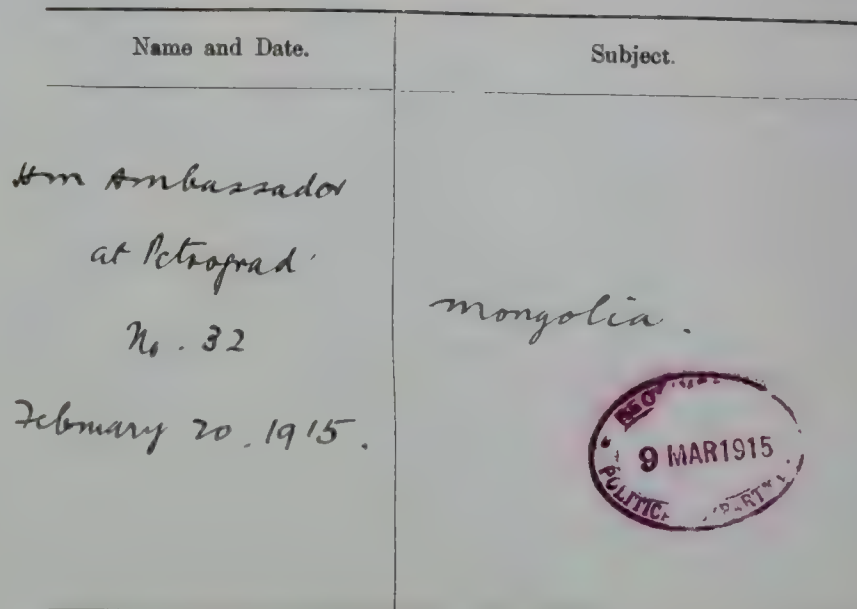 Name and Date.
Subject.
Hm Ambassador
at Petrograd
No. 32
February 20. 1915.
Mongolia.
9 MAR1915